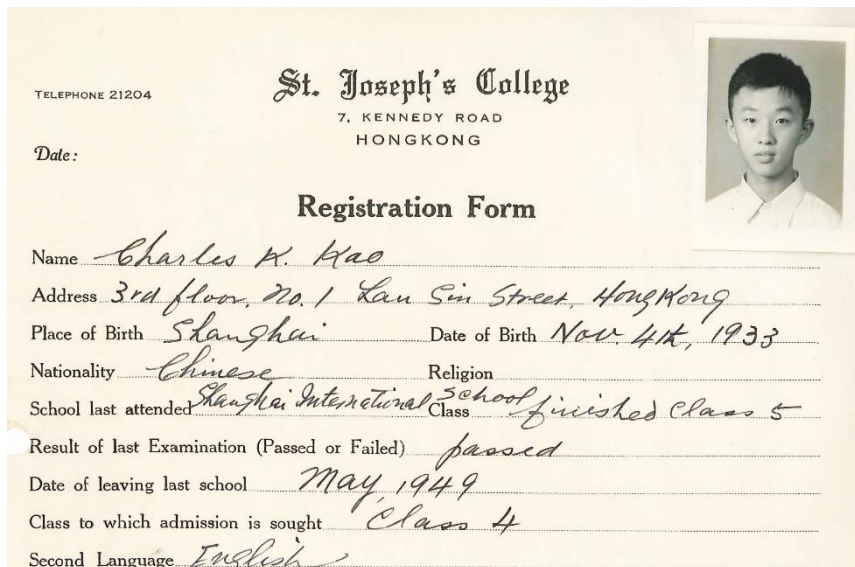 St. Joseph's College
TELEPHONE 21204
7, KENNEDY ROAD
HONGKONG
Date:
Registration Form
Name Charles K. Kao
Address 3rd floor, No. 1 Lan Sin Street, HongKong
Place of Birth Shanghai Date of Birth Nov. 4th, 1933
Nationality Chinese Religion
School last attended Shanghai International School Class finished Class 5
Result of last Examination (Passed or Failed) passed
Date of leaving last school May, 1949
Class to which admission is sought Class 4
Second Language English